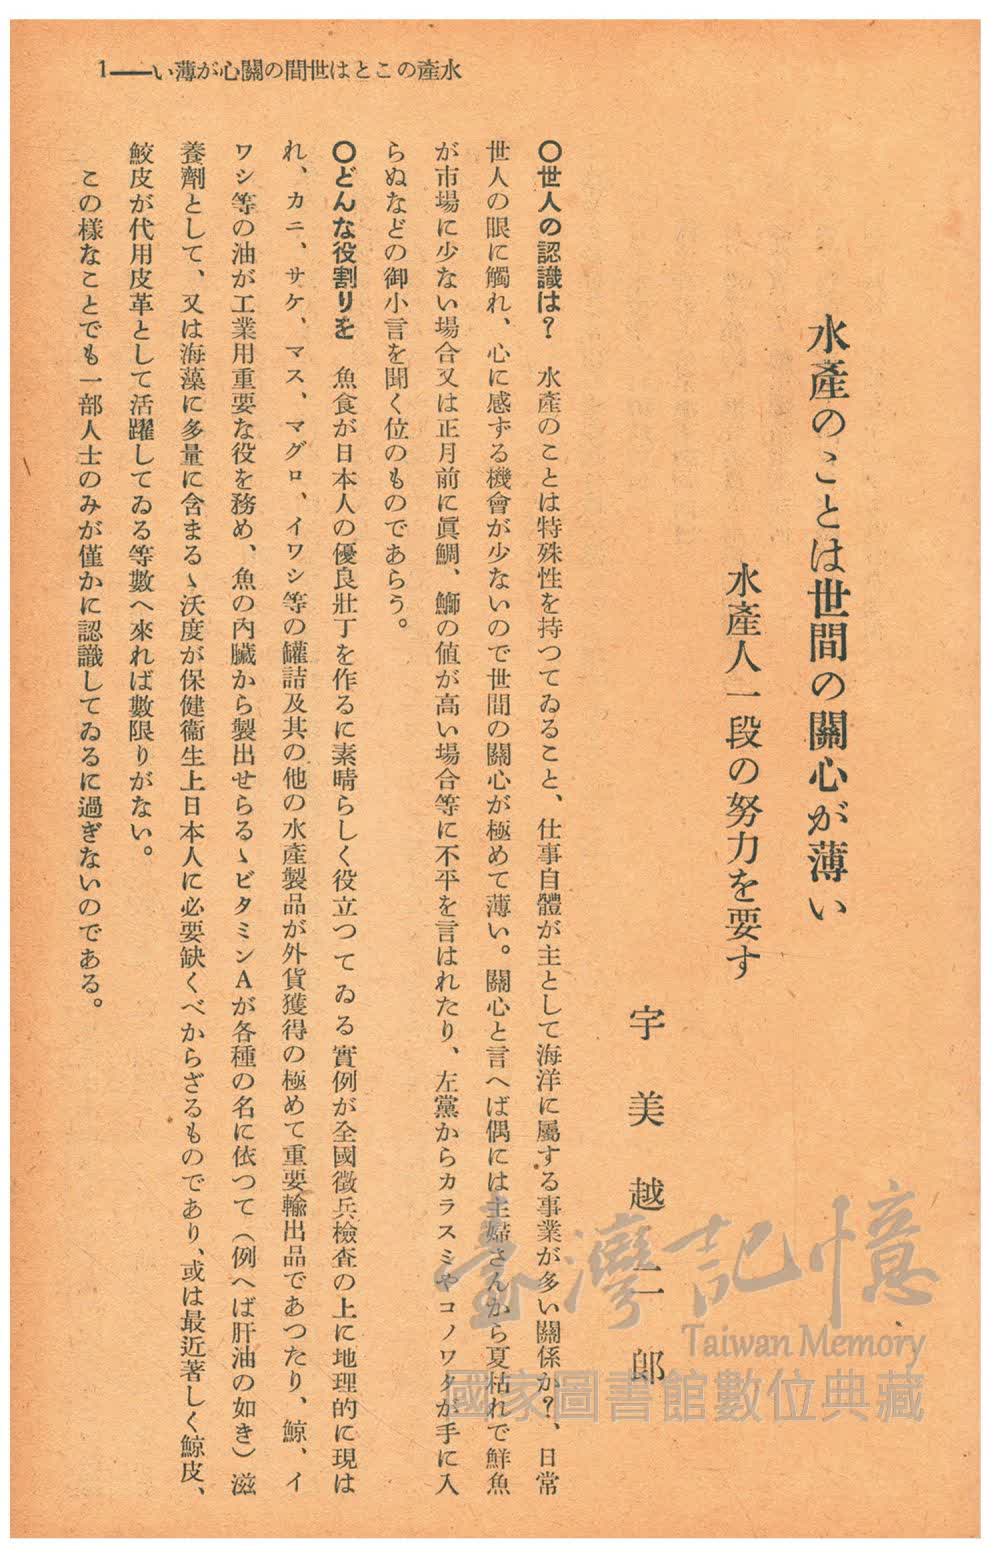 水產のことは世間の關心が薄い——1
水產のことは世間の關心が薄い
水產人一段の努力を要す
宇美越二郎
〇世人の認識は？　水產のことは特殊性を持つてゐること、仕事自體が主として海洋に屬する事業が多い關係か？、日常
世人の眼に觸れ、心に感ずる機會が少ないので世間の關心が極めて薄い。關心と言へば偶には主婦さんから夏枯れで鮮魚
が市場に少ない場合又は正月前に眞鯛、鰤の値が高い場合等に不平を言はれたり、左黨からカラスミやコノワタが手に入
らぬなどの御小言を聞く位のものであらう。
〇どんな役割りを　魚食が日本人の優良壯丁を作るに素晴らしく役立つてゐる實例が全國徵兵檢査の上に地理的に現は
れ、カニ、サケ、マス、マグロ、イワシ等の罐詰及其の他の水產製品が外貨獲得の極めて重要輸出品であつたり、鯨、イ
ワシ等の油が工業用重要な役を務め、魚の內臟から製出せらるゝビタミンAが各種の名に依つて（例へば肝油の如き）滋
養劑として、又は海藻に多量に含まるゝ沃度が保健衞生上日本人に必要缺くべからざるものであり、或は最近著しく鯨皮、
鮫皮が代用皮革として活躍してゐる等數へ來れば數限りがない。
この樣なことでも一部人士のみが僅かに認識してゐるに過ぎないのである。
臺灣記憶
Taiwan Memory
國家圖書館數位典藏